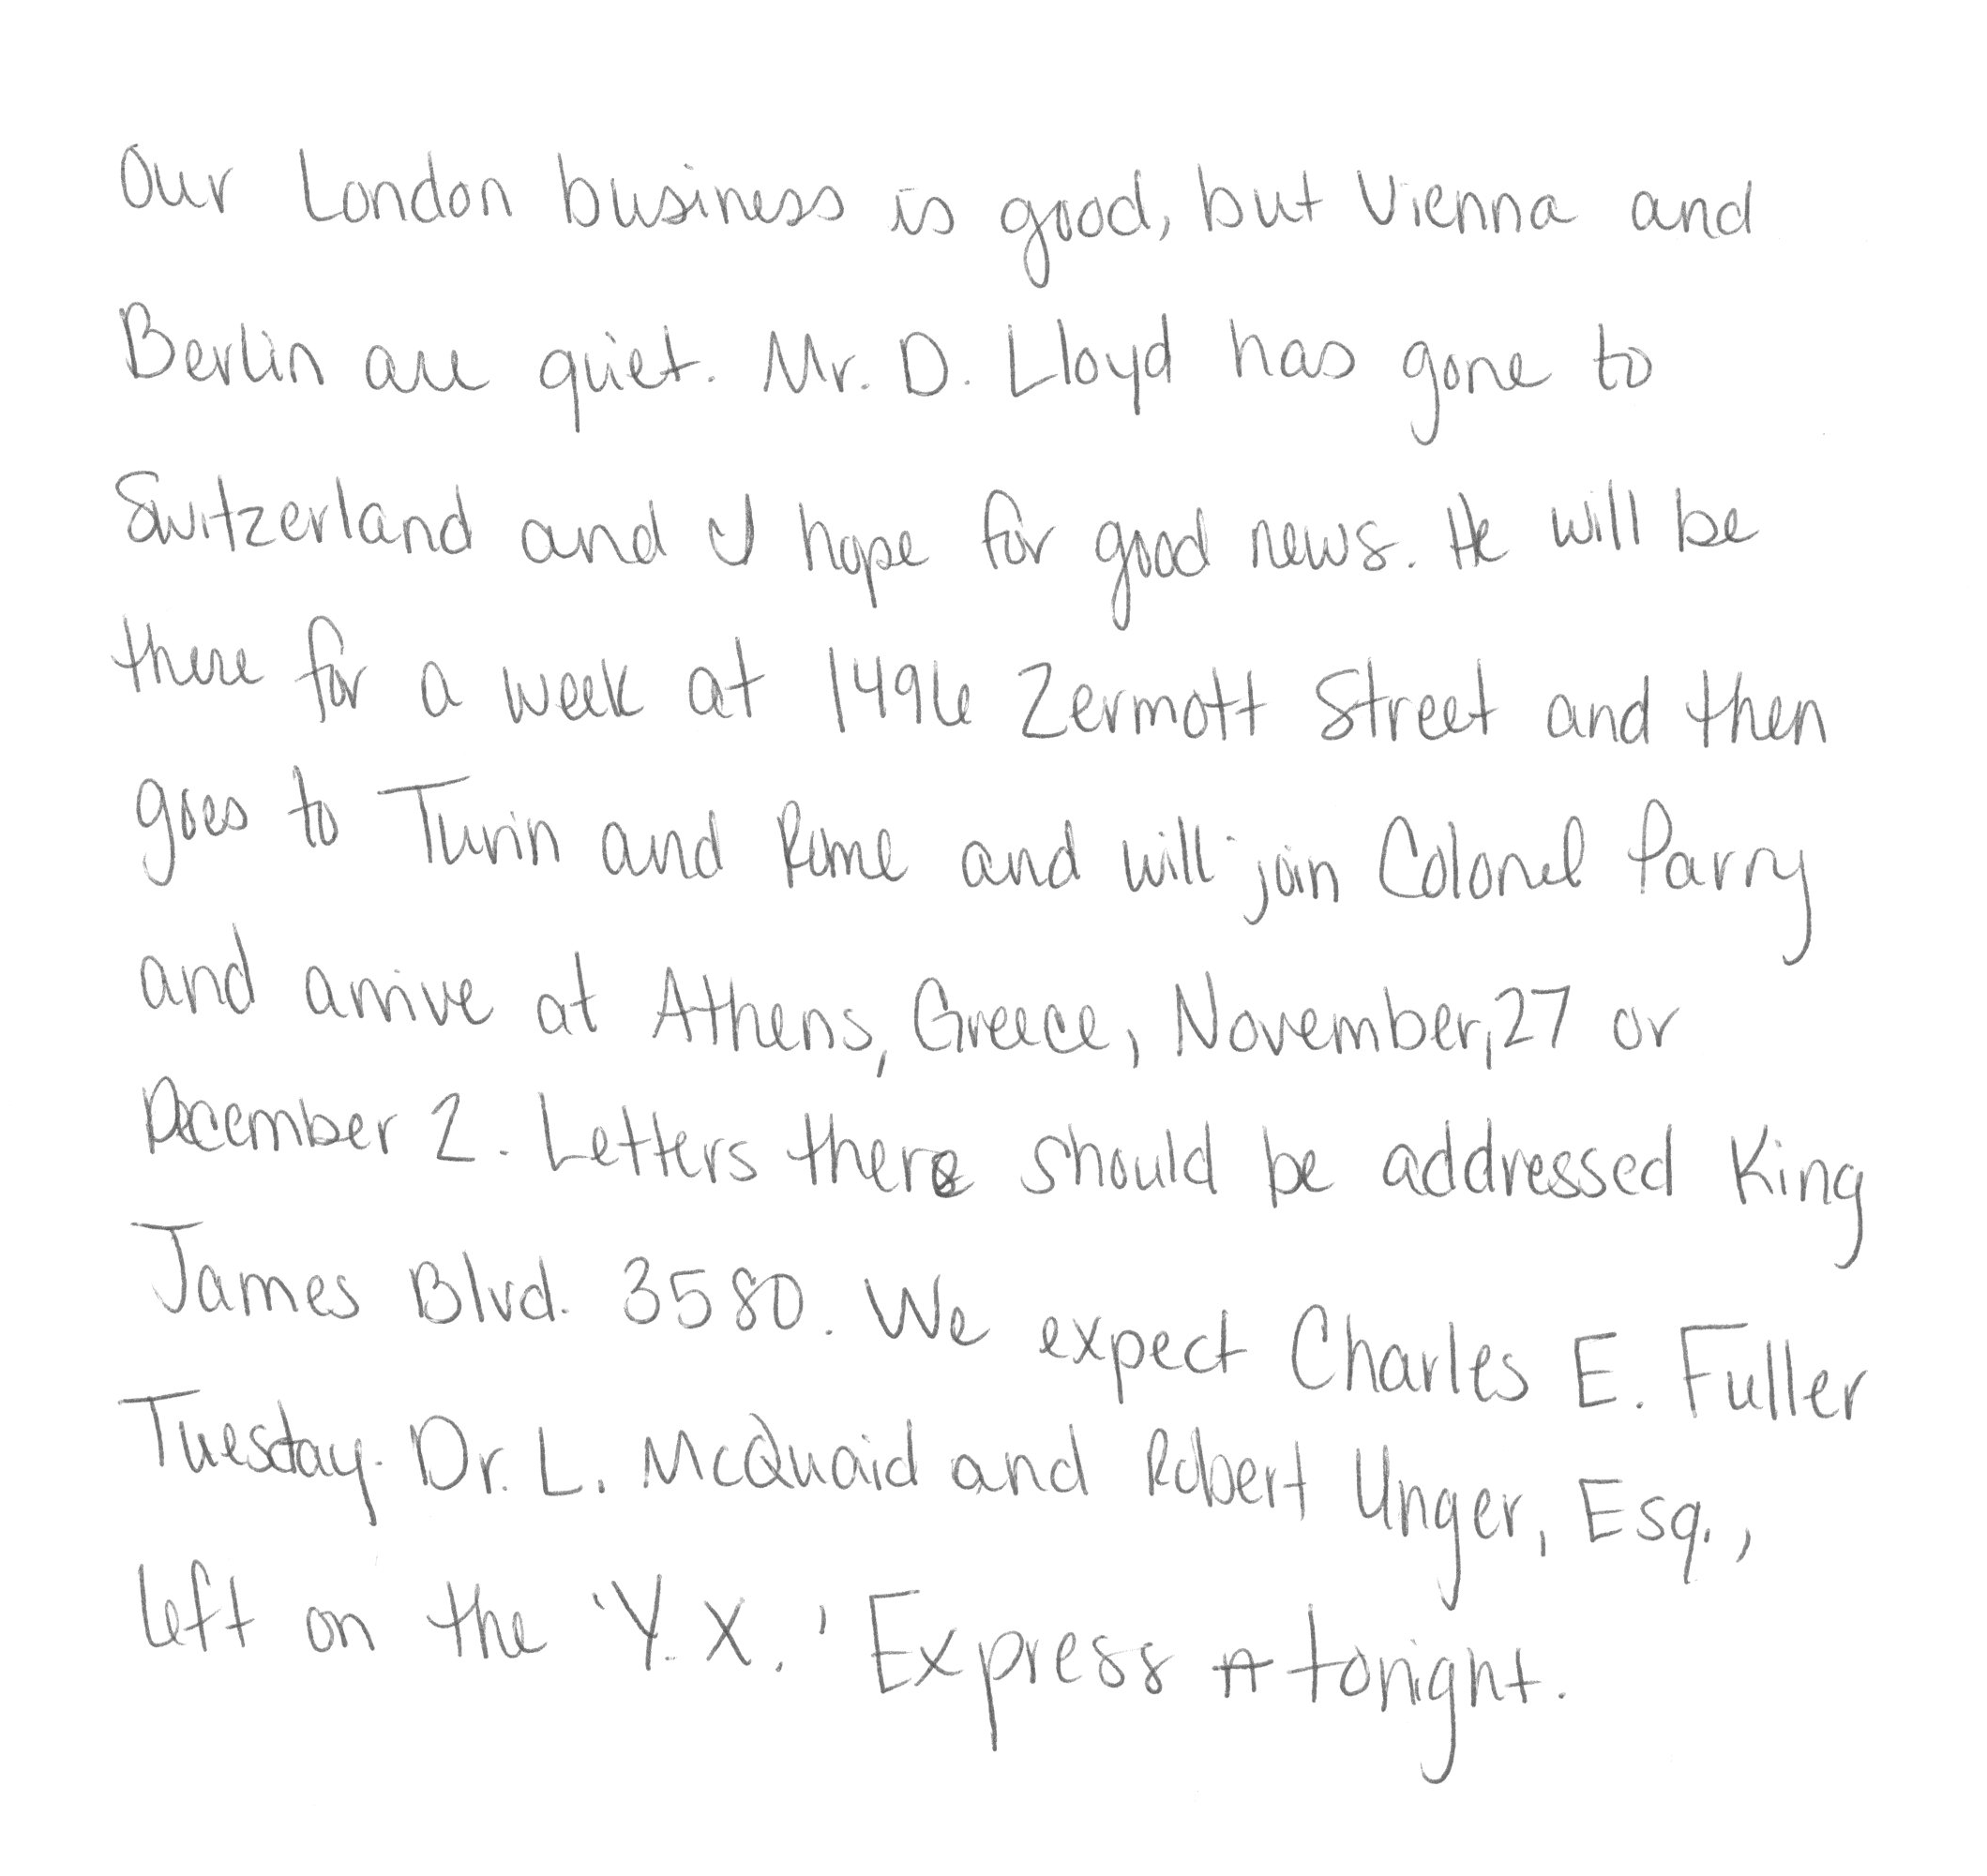 Our London business is good, but Vienna and
Berlin are quiet. Mr. D. Lloyd has gone to
Switzerland and I hope for good news. He will be
there for a week at 1496 Zermott Street and then
goes to Turin and Rome and will join Colonel Parry
and arrive at Athens, Greece, November, 27 or
December 2. Letters there should be addressed King
James Blvd. 3580. We expect Charles E. Fuller
Tuesday. Dr. L. McQuaid and Robert Unger, Esq.,
left on the 'Y. X.' Express tonight.